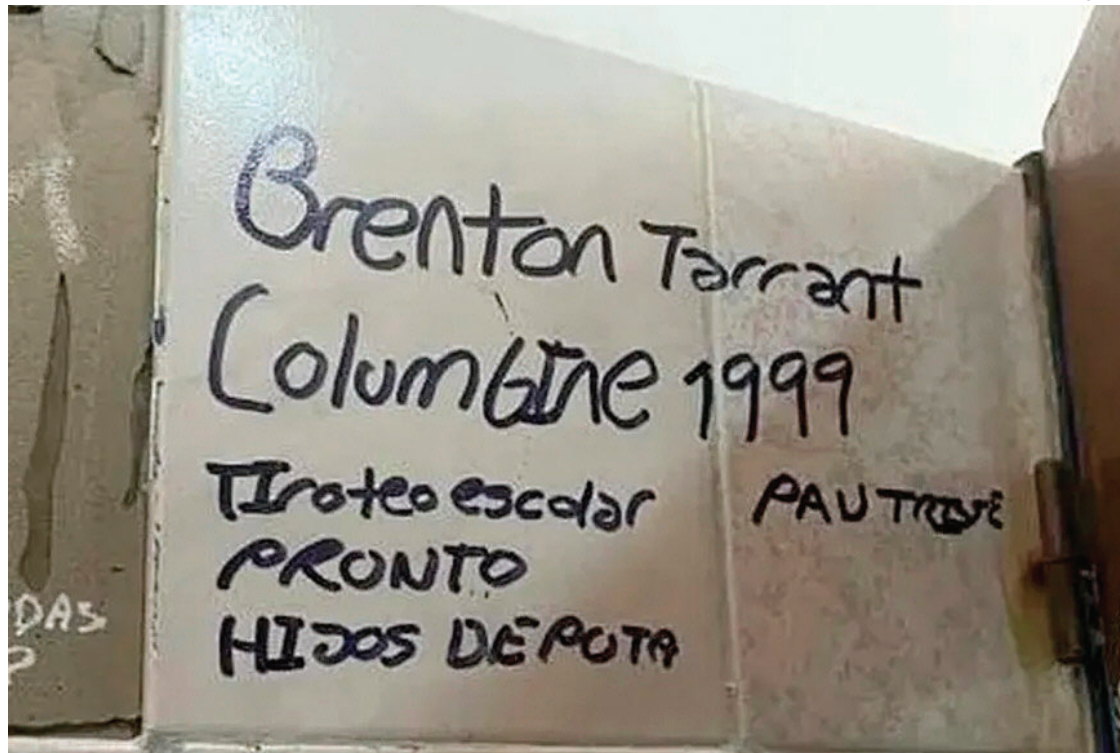 Brenton Tarrant
Columbine 1999
TIroteo escolar
PRONTO
HIJOS DE PUTA
PAU
DAS